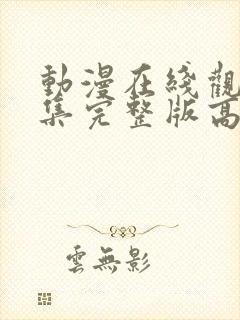 動漫在綫觀
集完整版高
雲無影